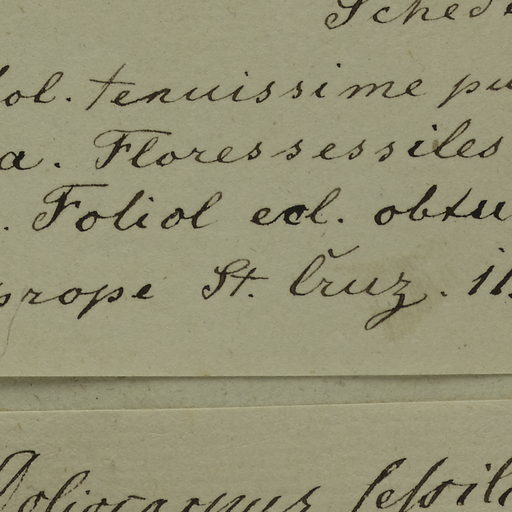 Schede
ol. tenuissime pu
a. Flores sessiles
. Foliol ecl. obtu
prope St. Cruz. 11
Doliocarpus sessil